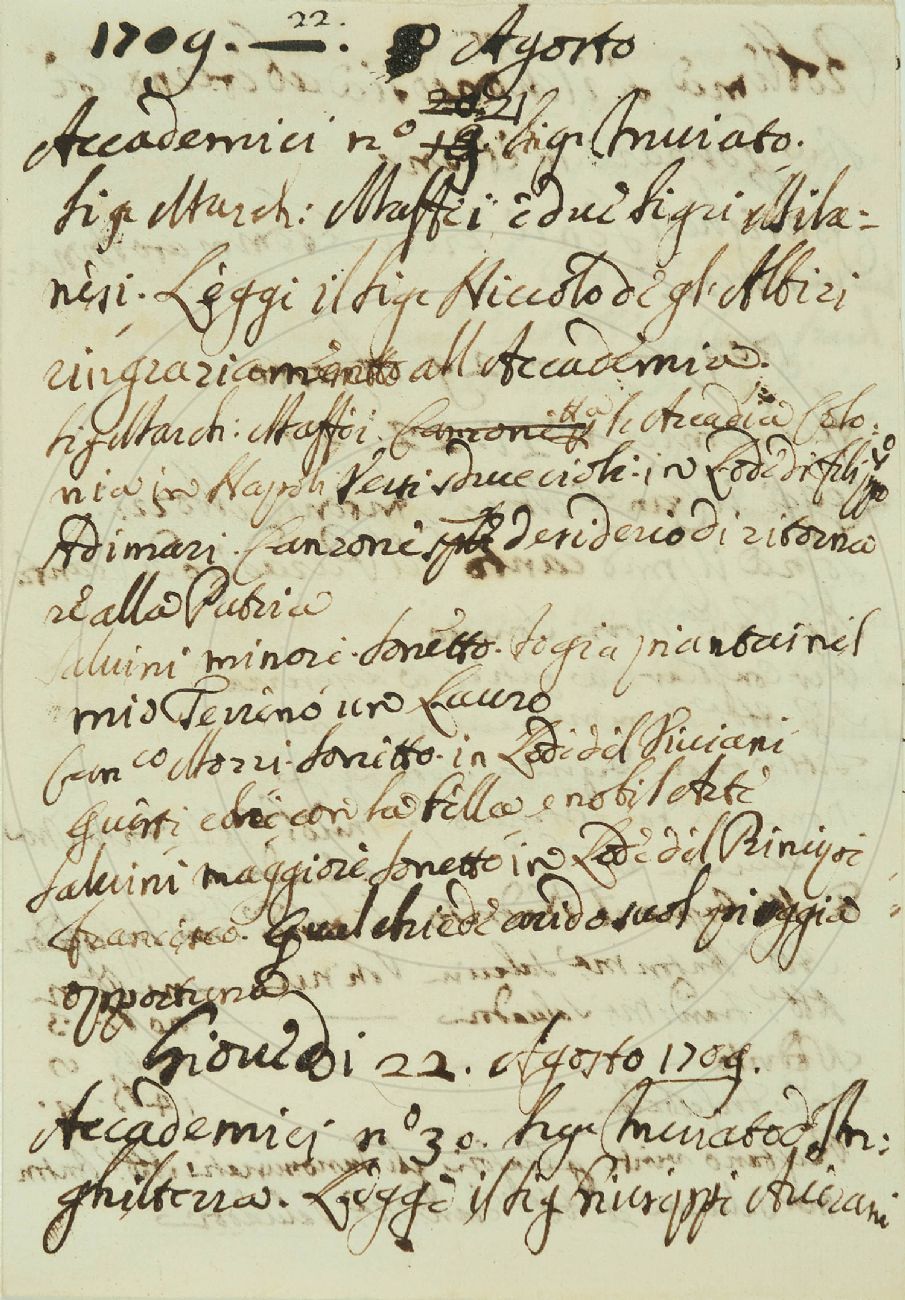 1709. — 22. 8 Agosto
Accademici n.o 20. 21 19. Sigr Inuiato.
Sigr March: Maffei e due Sigri Mila=
nesi. Leggi il Sigr Niccolo de gl'Albizi
ringraziamento all Accademia.
Sigr March: Maffei. Canzonetta, le Arcadia Colo:
nia in Napoli Versi sdruccioli. in Lode di filippo
Adimari. Canzone desiderio di ritorna
re alla Patria
Saluini minore. Sonetto. Io gia piantai nel
mio Terreno un Lauro
Can.co Mozzi. Sonetto. in Lode del Viuiani
Questi che con la bella e nobil Arte
Saluini maggiore Sonetto in Lode del Principe
Francesco. Qual chiede arido suol pioggia
opportuna
Giouedi 22. Agosto 1709.
Accademici n.o 30. Sigr Inuiato d'In:
ghilterra. Legge il Sig Giuseppe Auerani